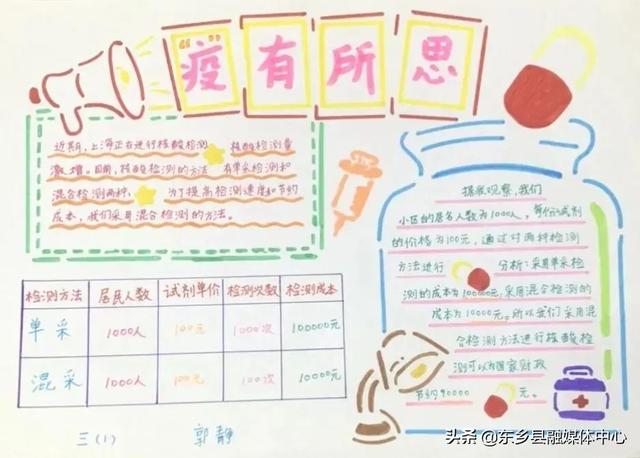 “疫”有所思
近期，上海正在进行核酸检测，核酸检测量
激增。目前，核酸检测的方法有单采检测和
混合检测两种，为了提高检测速度和节约
成本，我们采用混合检测的方法。
据我观察，我们
小区的居名人数为1000人，每份试剂
的价格为100元，通过对两种检测
方法进行分析：采用单采检
测的成本为100000元，采用混合检测的
成本为10000元。所以我们采用混
合检测方法进行核酸检
测可以为国家财政
节约90000元。
检测方法 居民人数 试剂单价 检测次数 检测成本
单采 1000人 100元 1000次 100000元
混采 1000人 100元 100次 10000元
三（1） 郭静
头条@东乡县融媒体中心